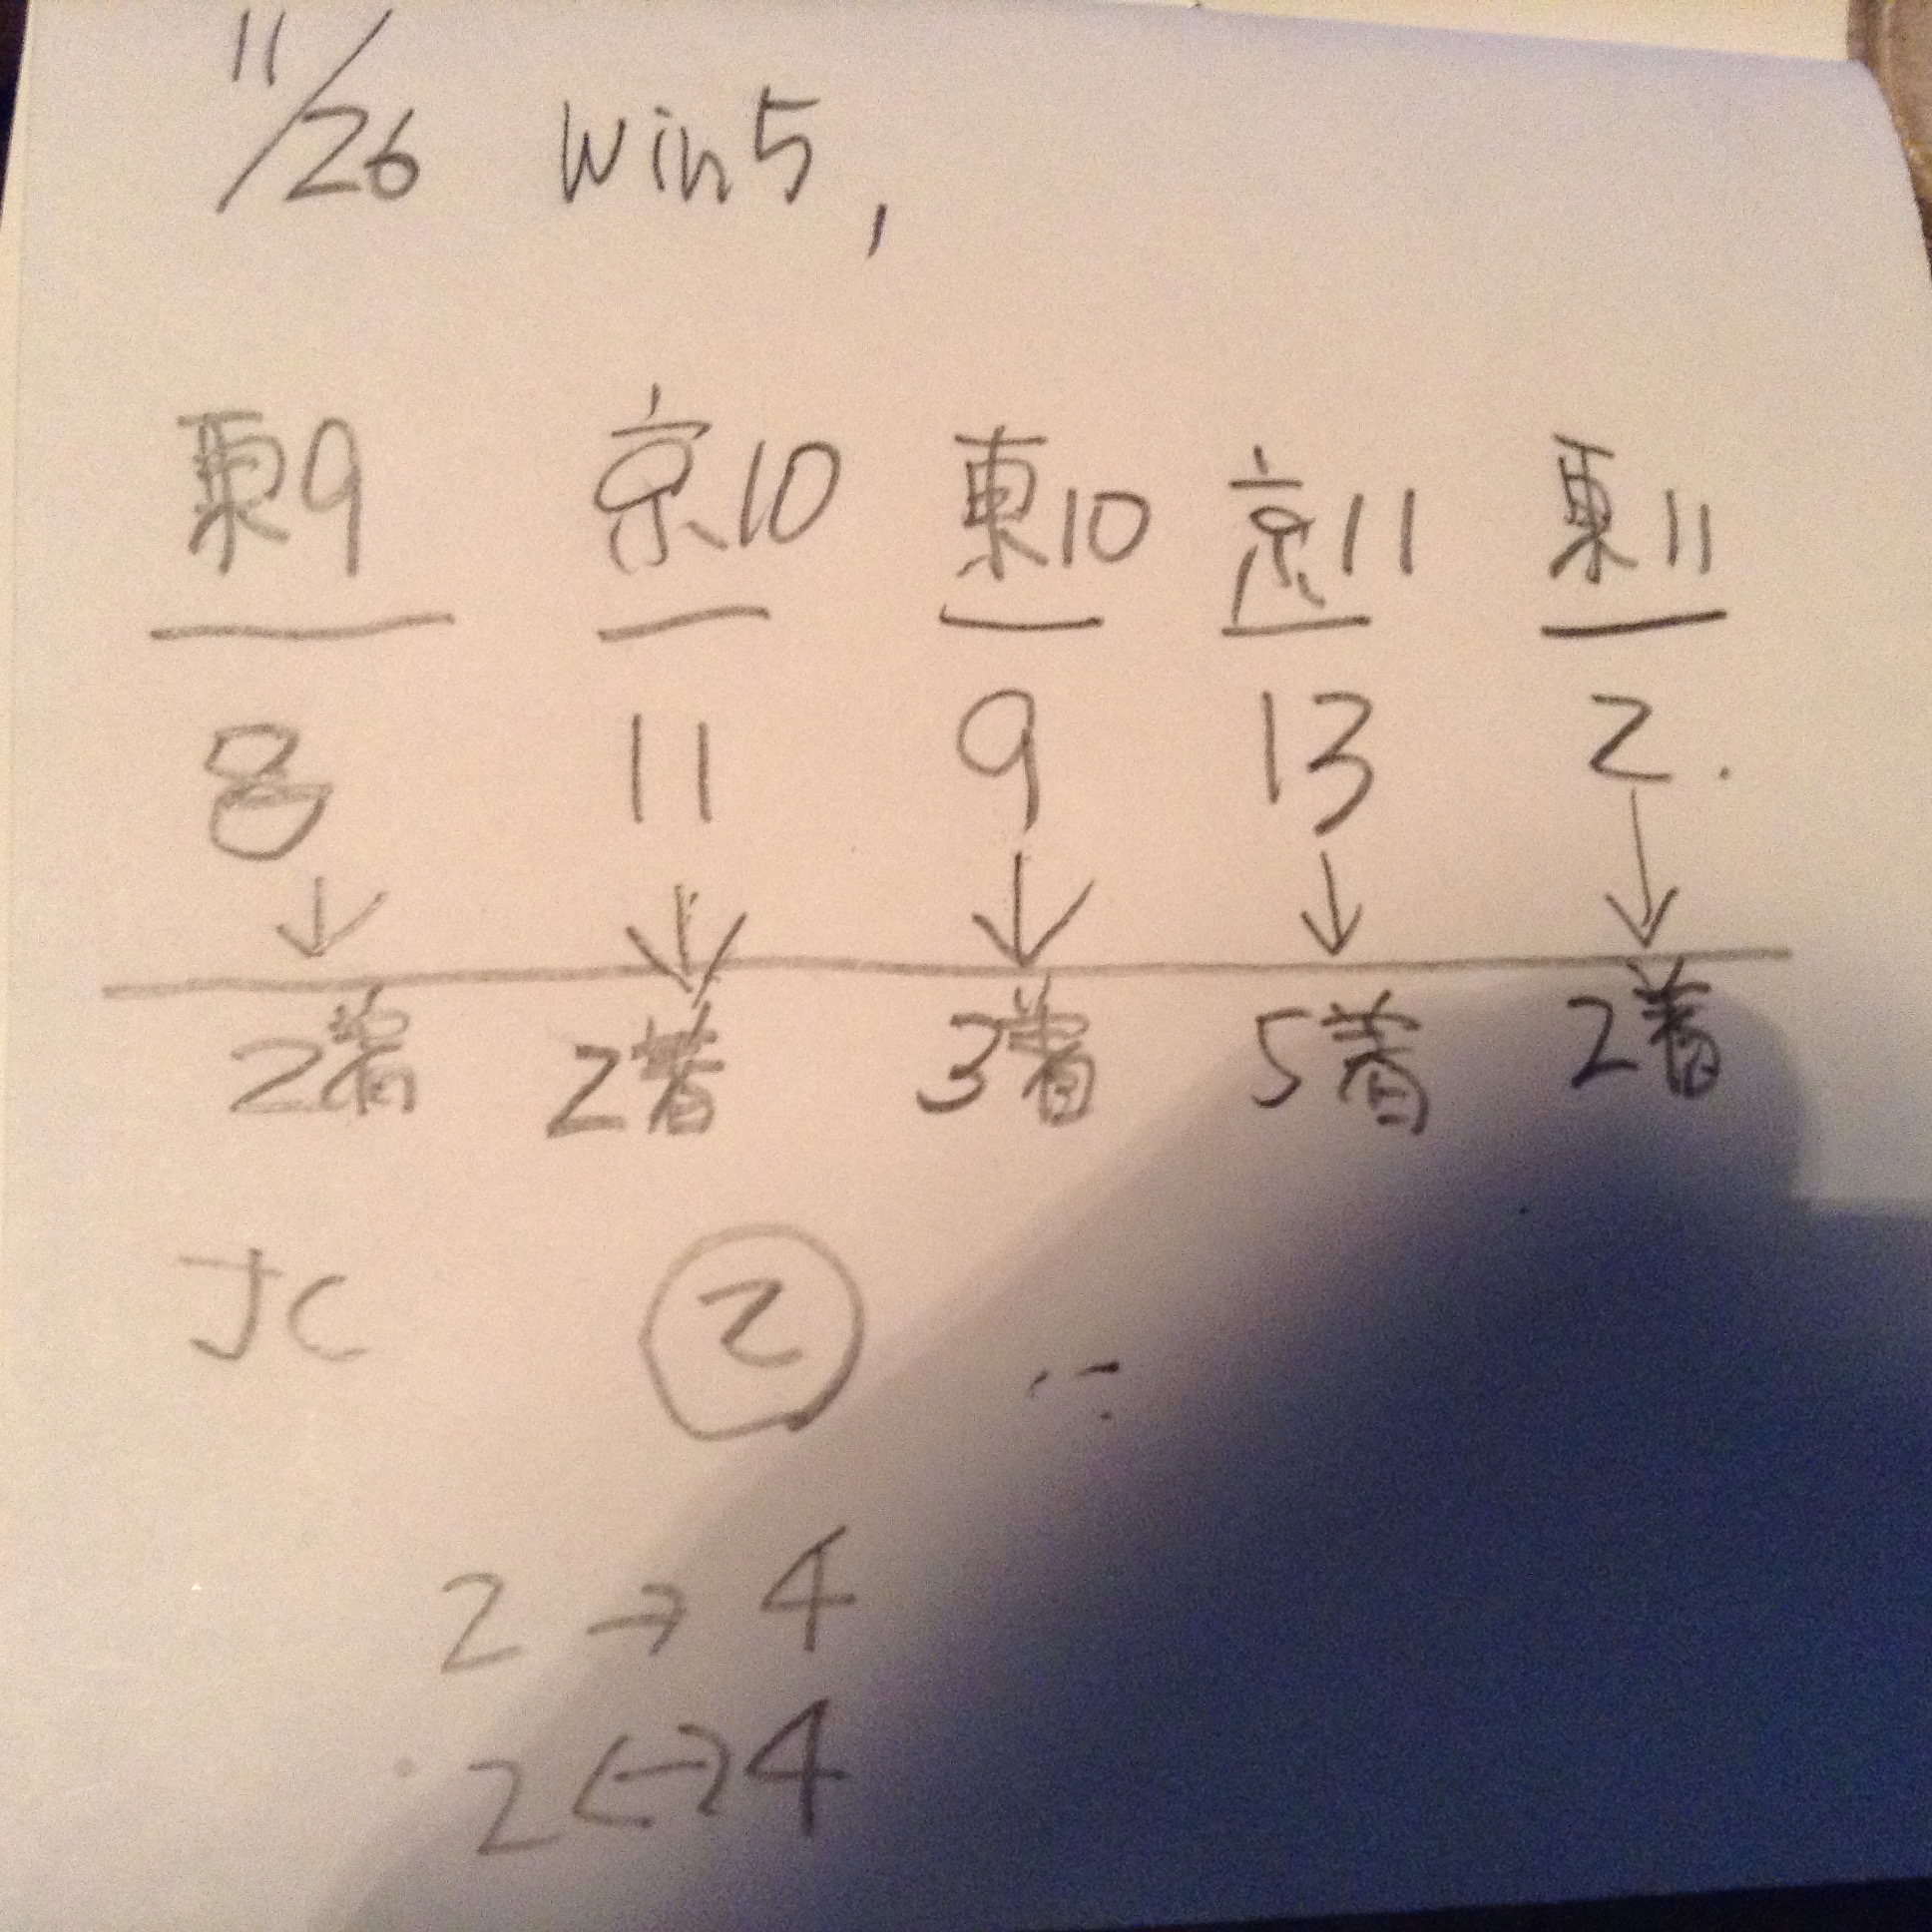 11/26 Win5,
東9 京10 東10 京11 東11
8 11 9 13 2.
↓ ↓ ↓ ↓ ↓
2着 2着 3着 5着 2着
JC ②
2→4
2↔4